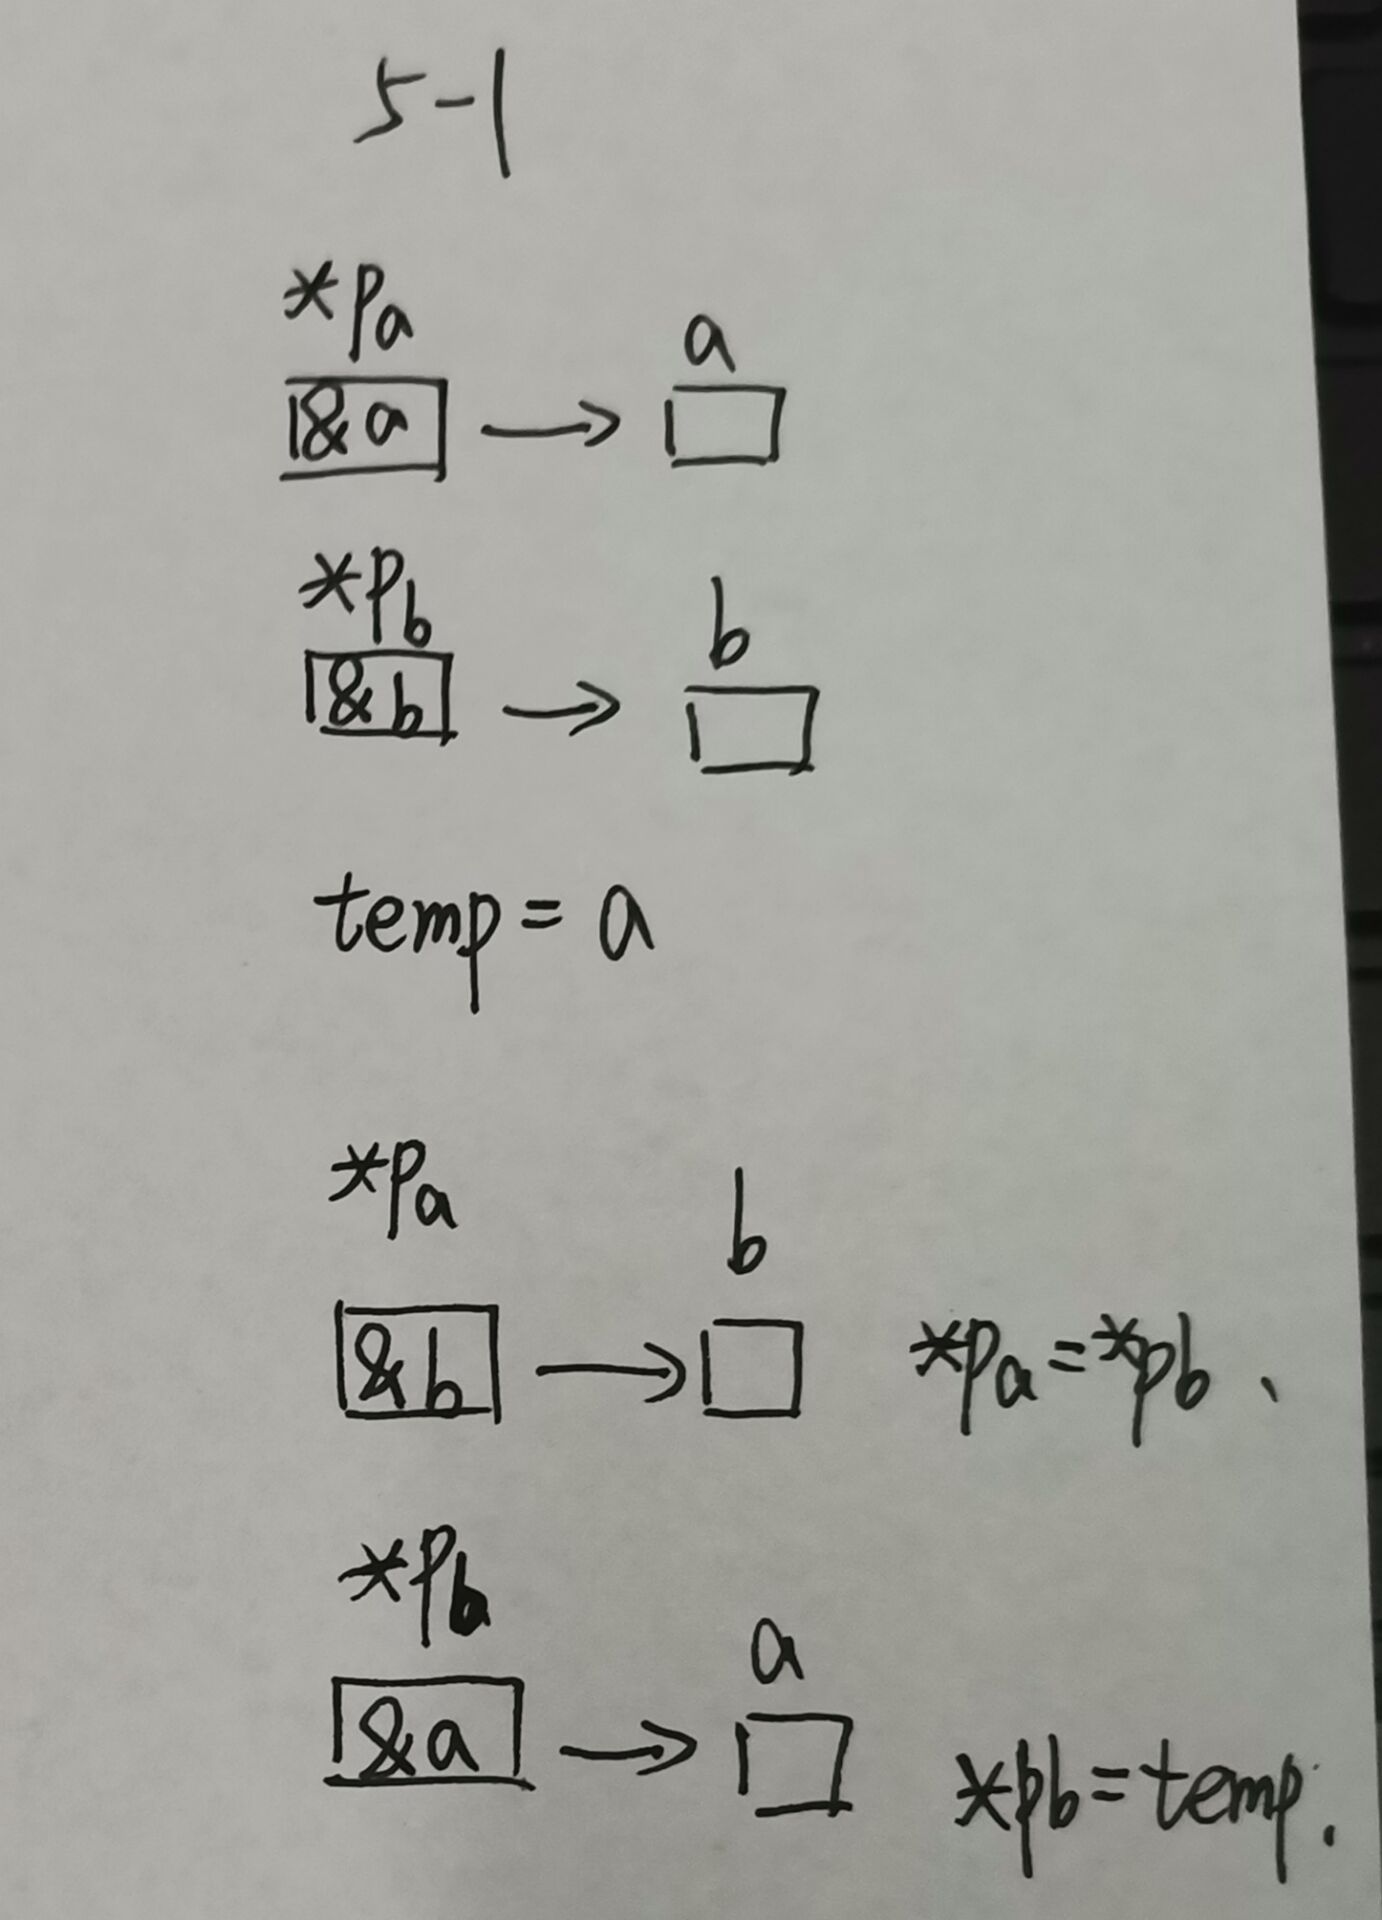 5-1
*pa
a
&a
*pb
b
&b
temp = a
*pa
b
&b
*pa=*pb、
*pb
a
&a
*pb=temp.